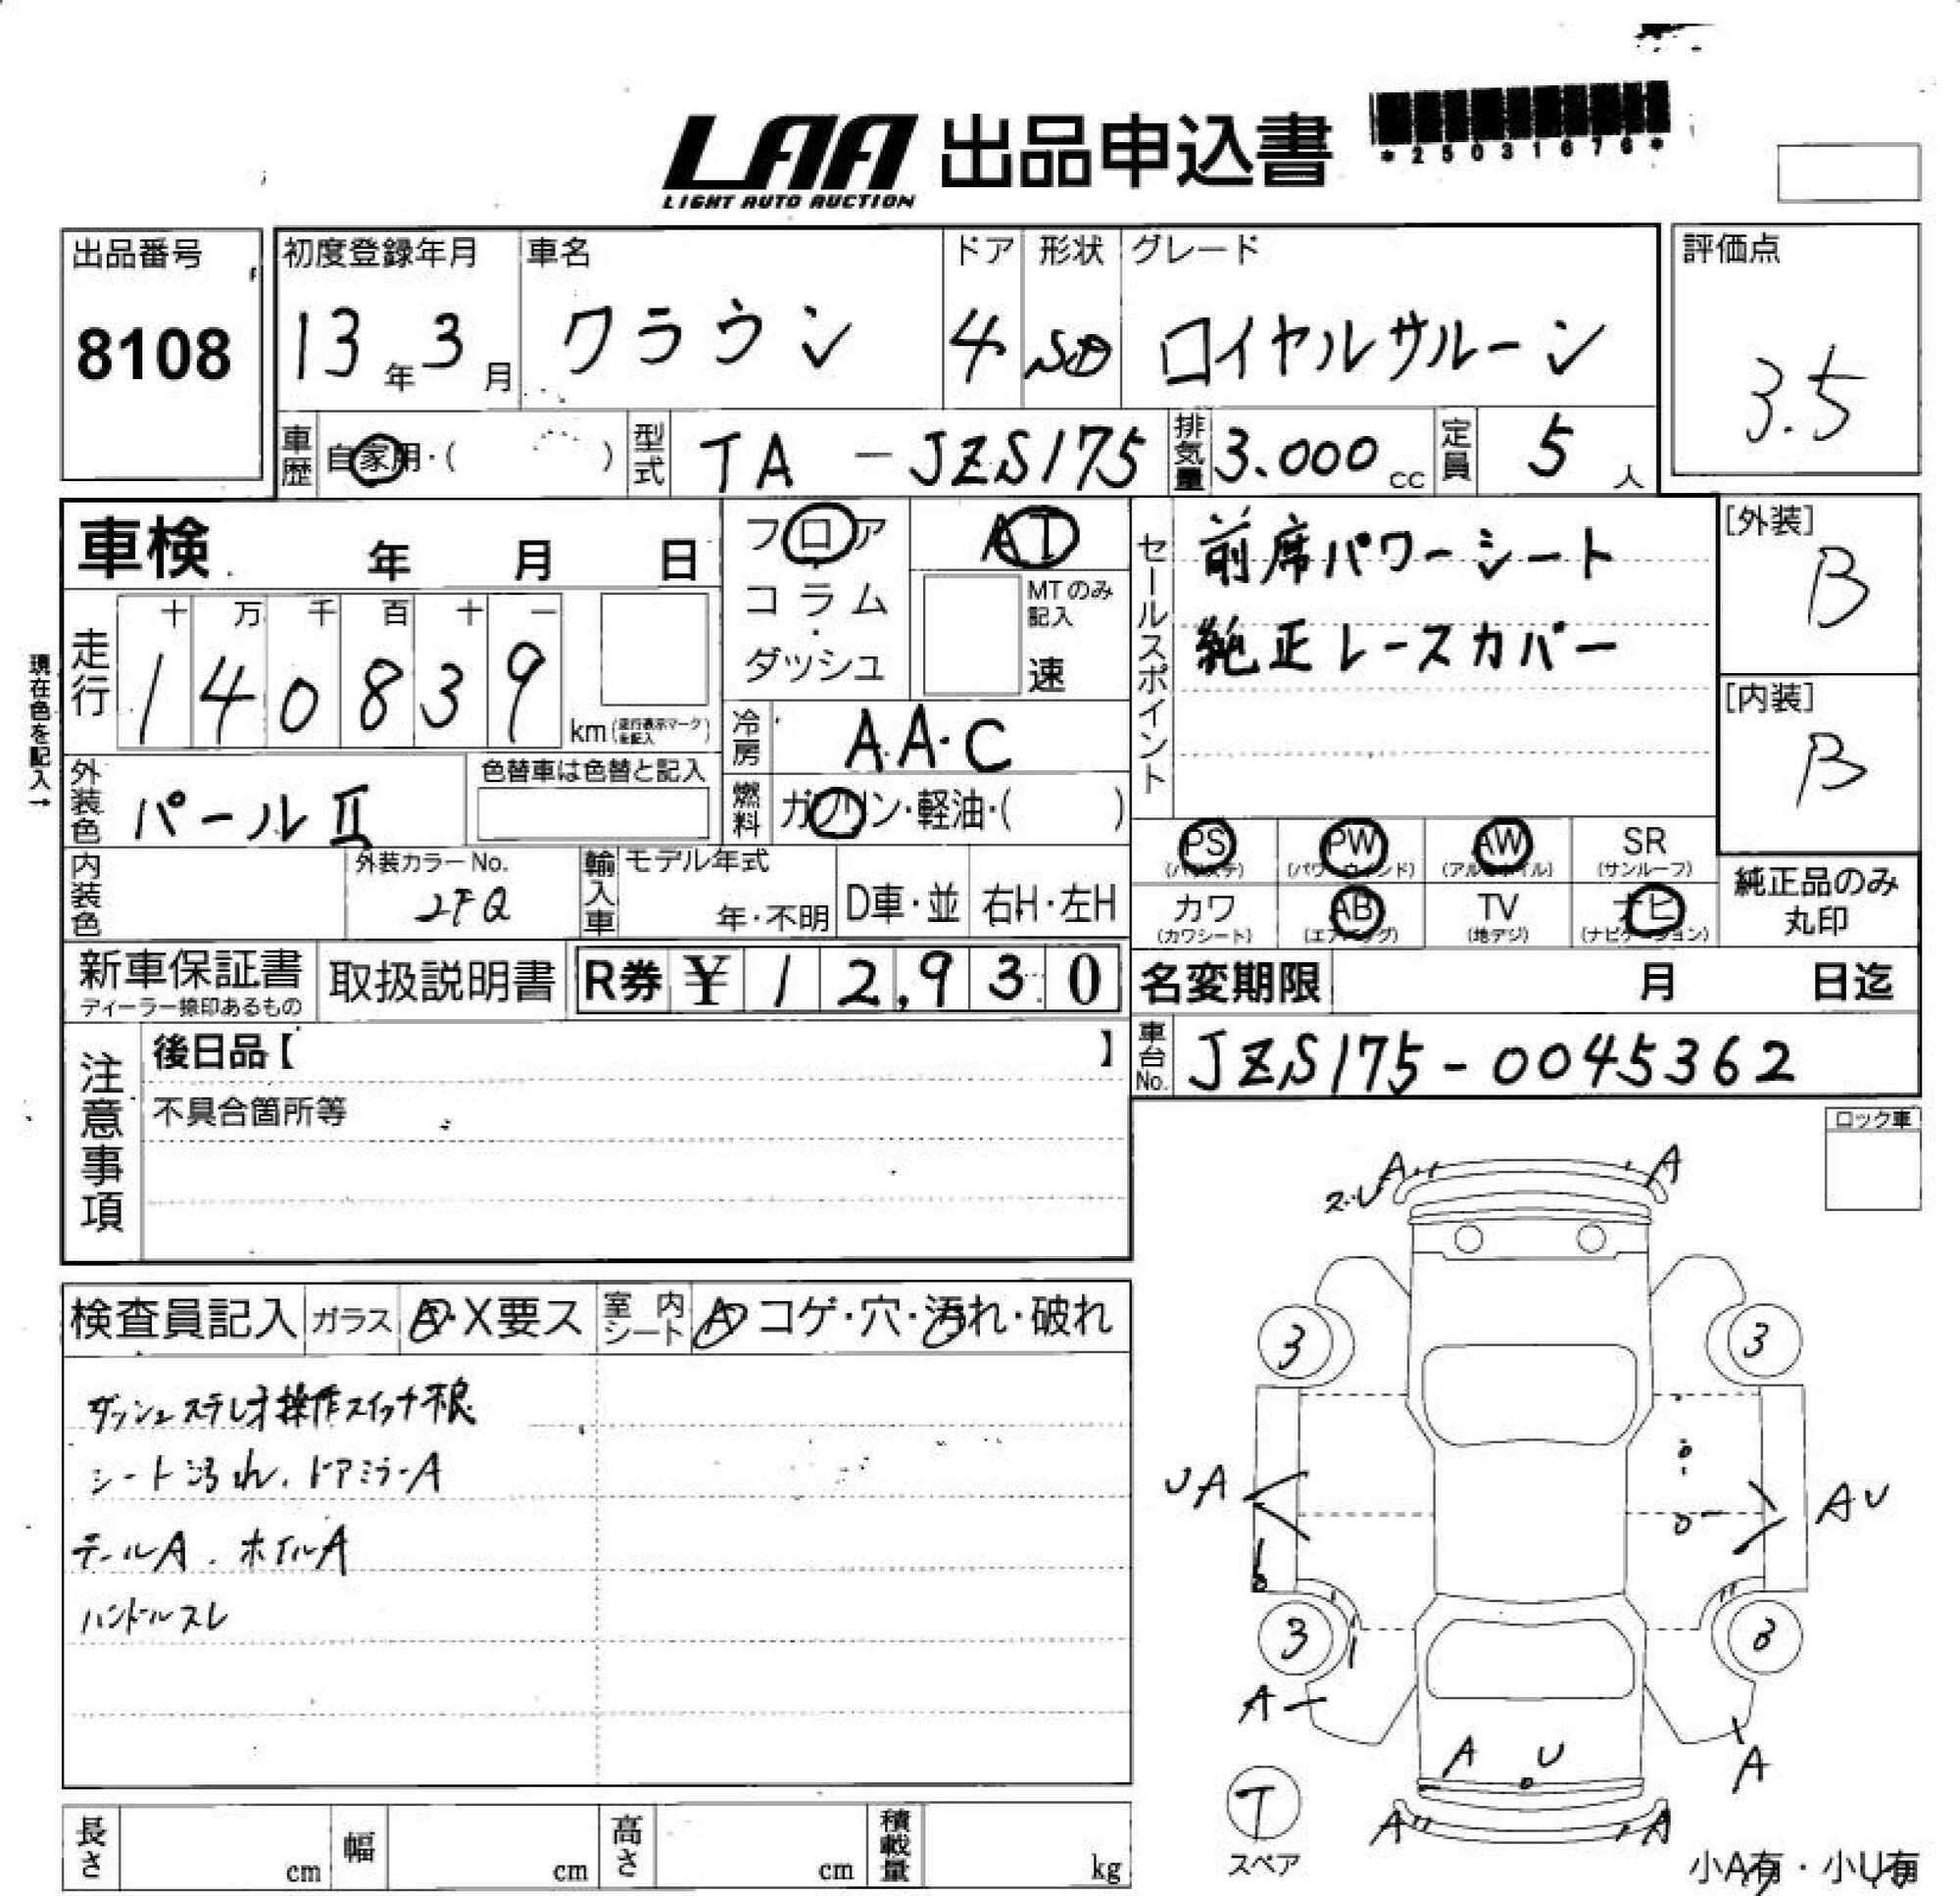 LAA 出品申込書
LIGHT AUTO AUCTION
*25031676*
出品番号
8108
初度登録年月
13年3月
車名
クラウン
ドア
4
形状
SD
グレード
ロイヤルサルーン
評価点
3.5
車歴
自家用・( )
型式
TA-JZS175
排気量
3.000cc
定員
5人
車検 年 月 日
フロア
コラム
・
ダッシュ
AT
MTのみ記入
速
セールスポイント
前席パワーシート
純正レースカバー
[外装]
B
[内装]
B
現在色を記入→
走行
十 万 千 百 十 一
1 4 0 8 3 9
km(走行表示マークを記入)
冷房
A.A.C
燃料
ガソリン・軽油・( )
外装色
パールⅡ
色替車は色替と記入
内装色
外装カラーNo.
2FQ
輸入車
モデル年式
年・不明
D車・並
右H・左H
PS
(パワステ)
PW
(パワーウインド)
AW
(アルミホイル)
SR
(サンルーフ)
カワ
(カワシート)
AB
(エアバッグ)
TV
(地デジ)
ナビ
(ナビゲーション)
純正品のみ
丸印
新車保証書
ディーラー捺印あるもの
取扱説明書
R券 ¥ 12,930
名変期限 月 日迄
車台No.
JZS175-0045362
注意事項
後日品【 】
不具合箇所等
ロック車
検査員記入
ガラス
A・X要ス
室内シート
A コゲ・穴・汚れ・破れ
ダッシュステレオ操作スイッチ不良
シート汚れ、ドアミラーA
テールA、ホイルA
ハンドルスレ
A A
ス・U
3 3
UA AU
3 3
A
A U A
T
スペア
A A
小A有・小U有
長さ cm
幅 cm
高さ cm
積載量 kg